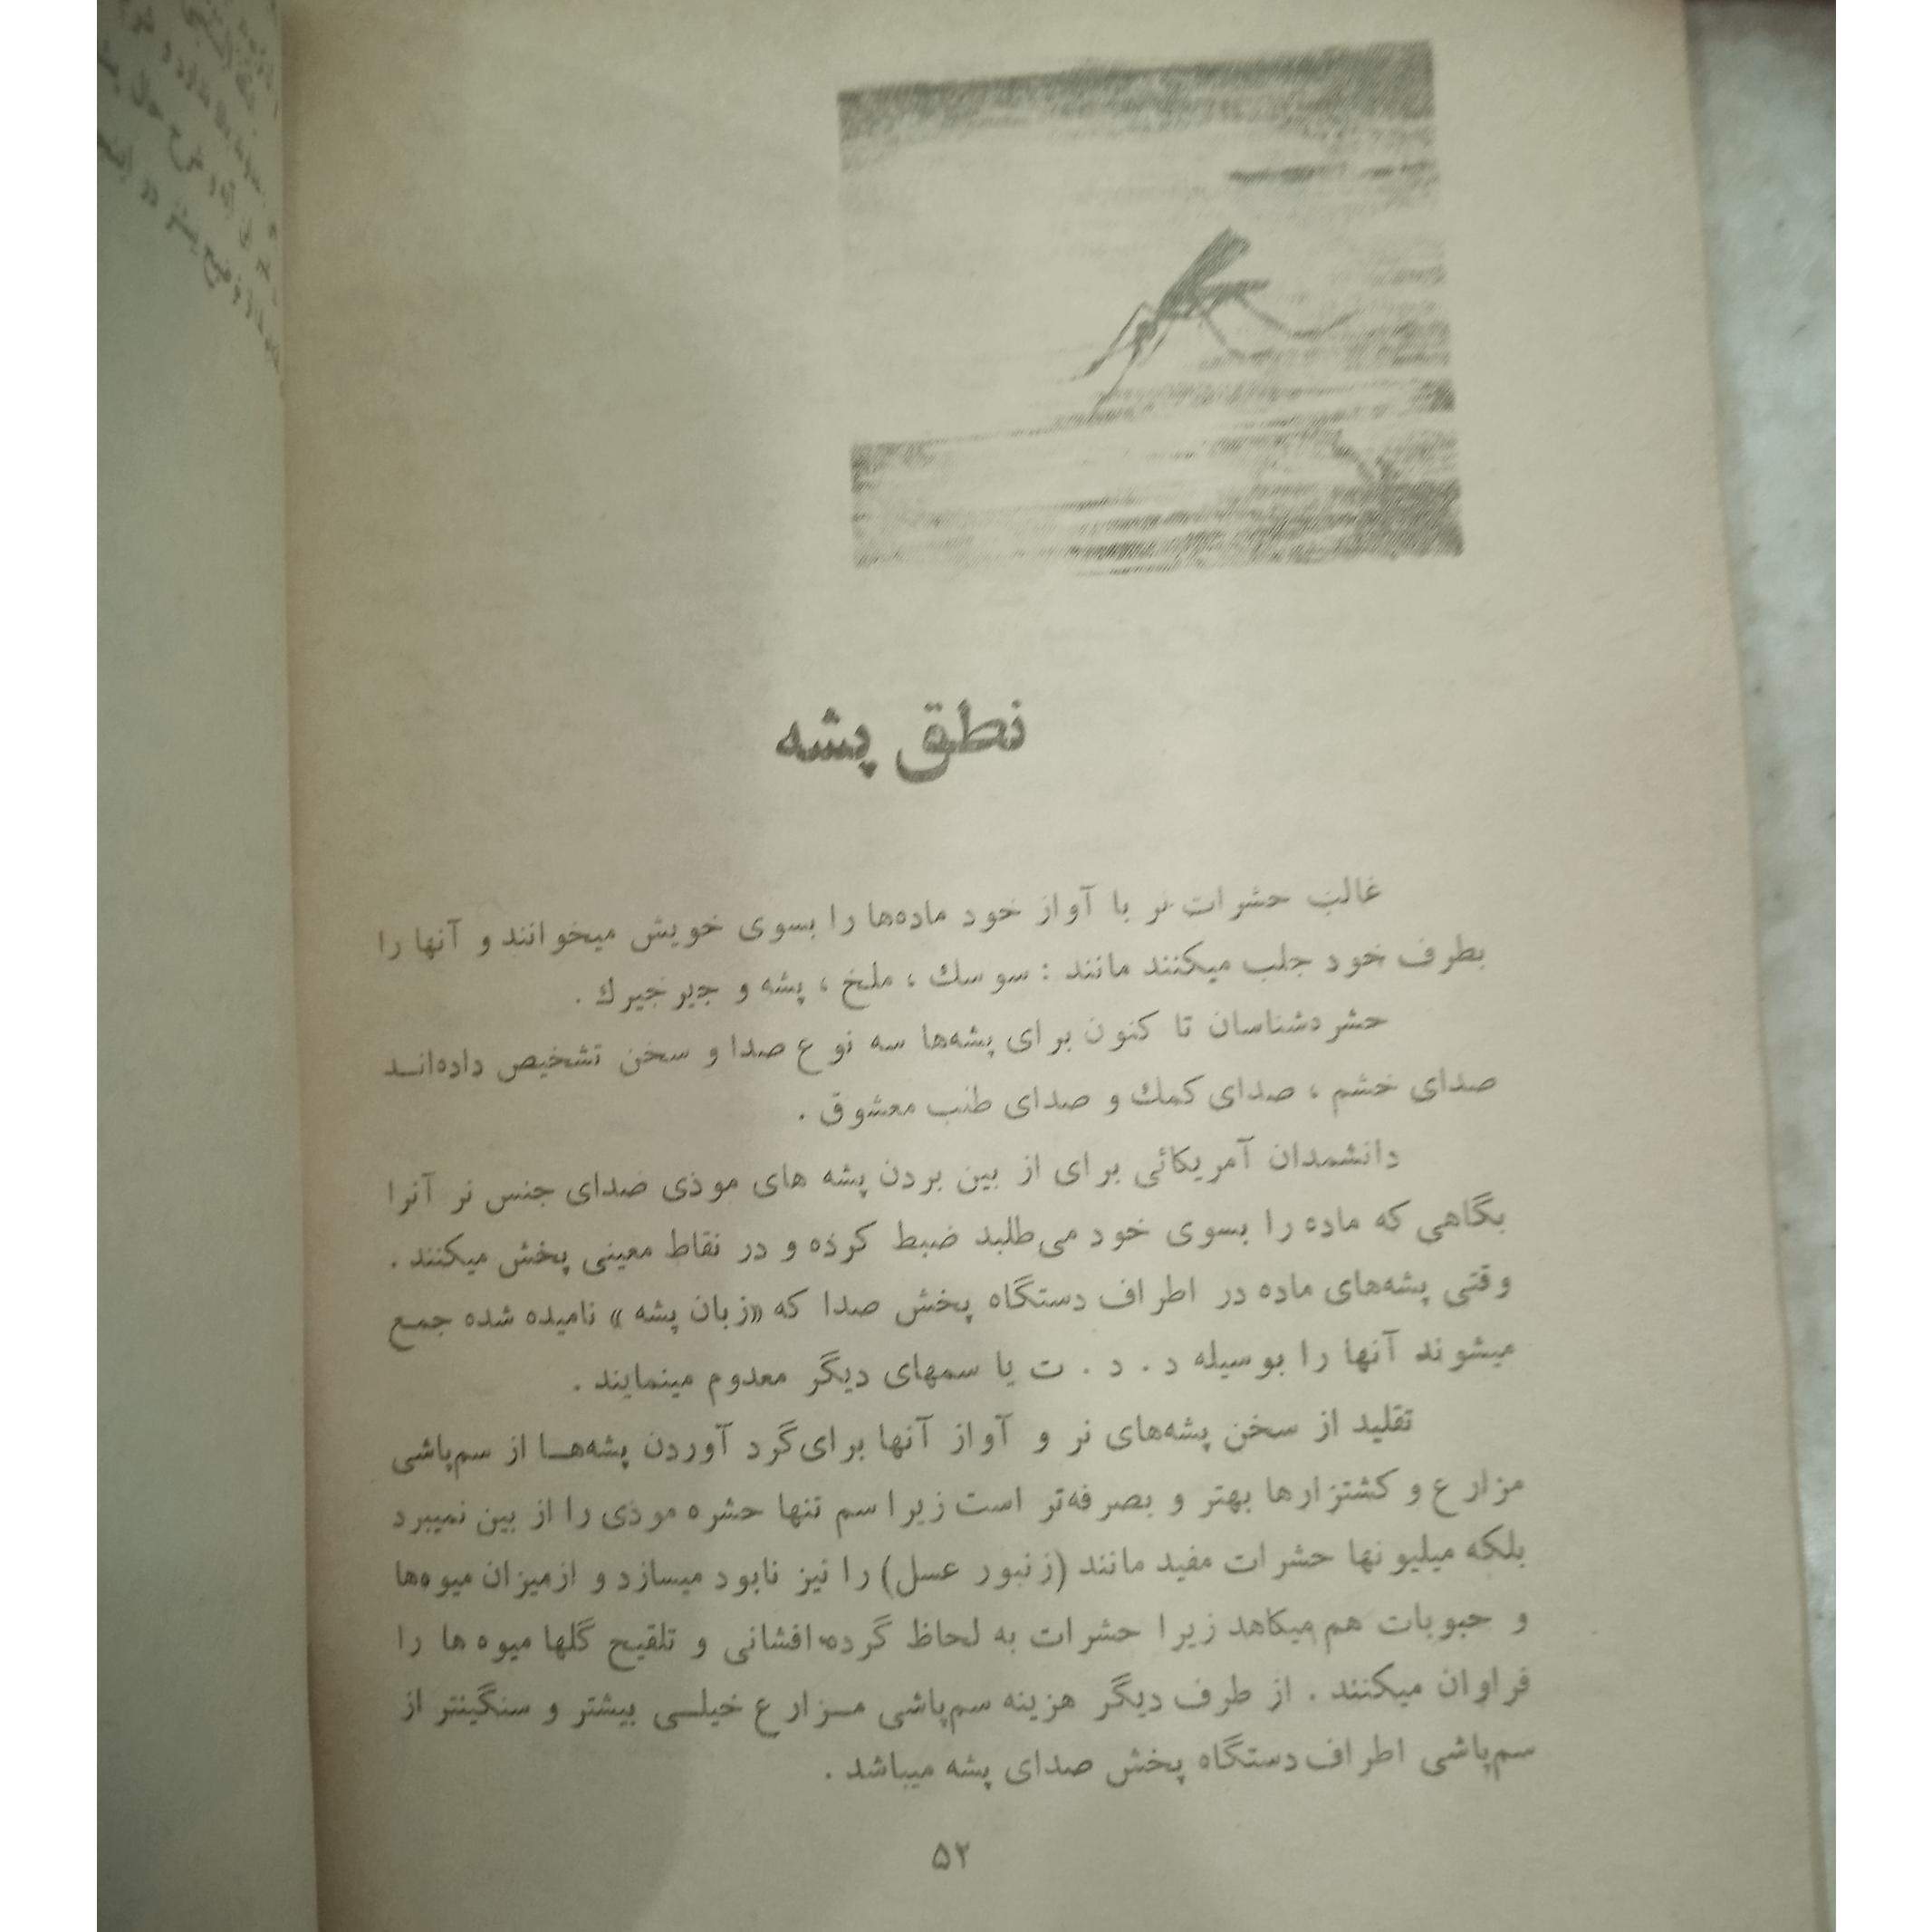 نطق پشه
غالب حشرات نر با آواز خود ماده‌ها را بسوی خویش میخوانند و آنها را
بطرف خود جلب میکنند مانند : سوسك ، ملخ ، پشه و جیرجیرك .
حشره‌شناسان تا کنون برای پشه‌ها سه نوع صدا و سخن تشخیص داده‌انـد
صدای خشم ، صدای کمك و صدای طنب معشوق .
دانشمدان آمریکائی برای از بین بردن پشه های موذی صدای جنس نر آنرا
بگاهی که ماده را بسوی خود می‌طلبد ضبط کرده و در نقاط معینی پخش میکنند .
وقتی پشه‌های ماده در اطراف دستگاه پخش صدا که «زبان پشه» نامیده شده جمع
میشوند آنها را بوسیله د . د . ت یا سمهای دیگر معدوم مینمایند .
تقلید از سخن پشه‌های نر و آواز آنها برای‌گرد آوردن پشه‌هـا از سم‌پاشی
مزارع و کشتزارها بهتر و بصرفه‌تر است زیرا سم تنها حشره موذی را از بین نمیبرد
بلکه میلیونها حشرات مفید مانند (زنبور عسل) را نیز نابود میسازد و ازمیزان میوه‌ها
و حبوبات هم میکاهد زیرا حشرات به لحاظ گرده‌افشانی و تلقیح گلها میوه ها را
فراوان میکنند . از طرف دیگر هزینه سم‌پاشی مـزارع خیلـی بیشتر و سنگینتر از
سم‌پاشی اطراف دستگاه پخش صدای پشه میباشد .
۵۲